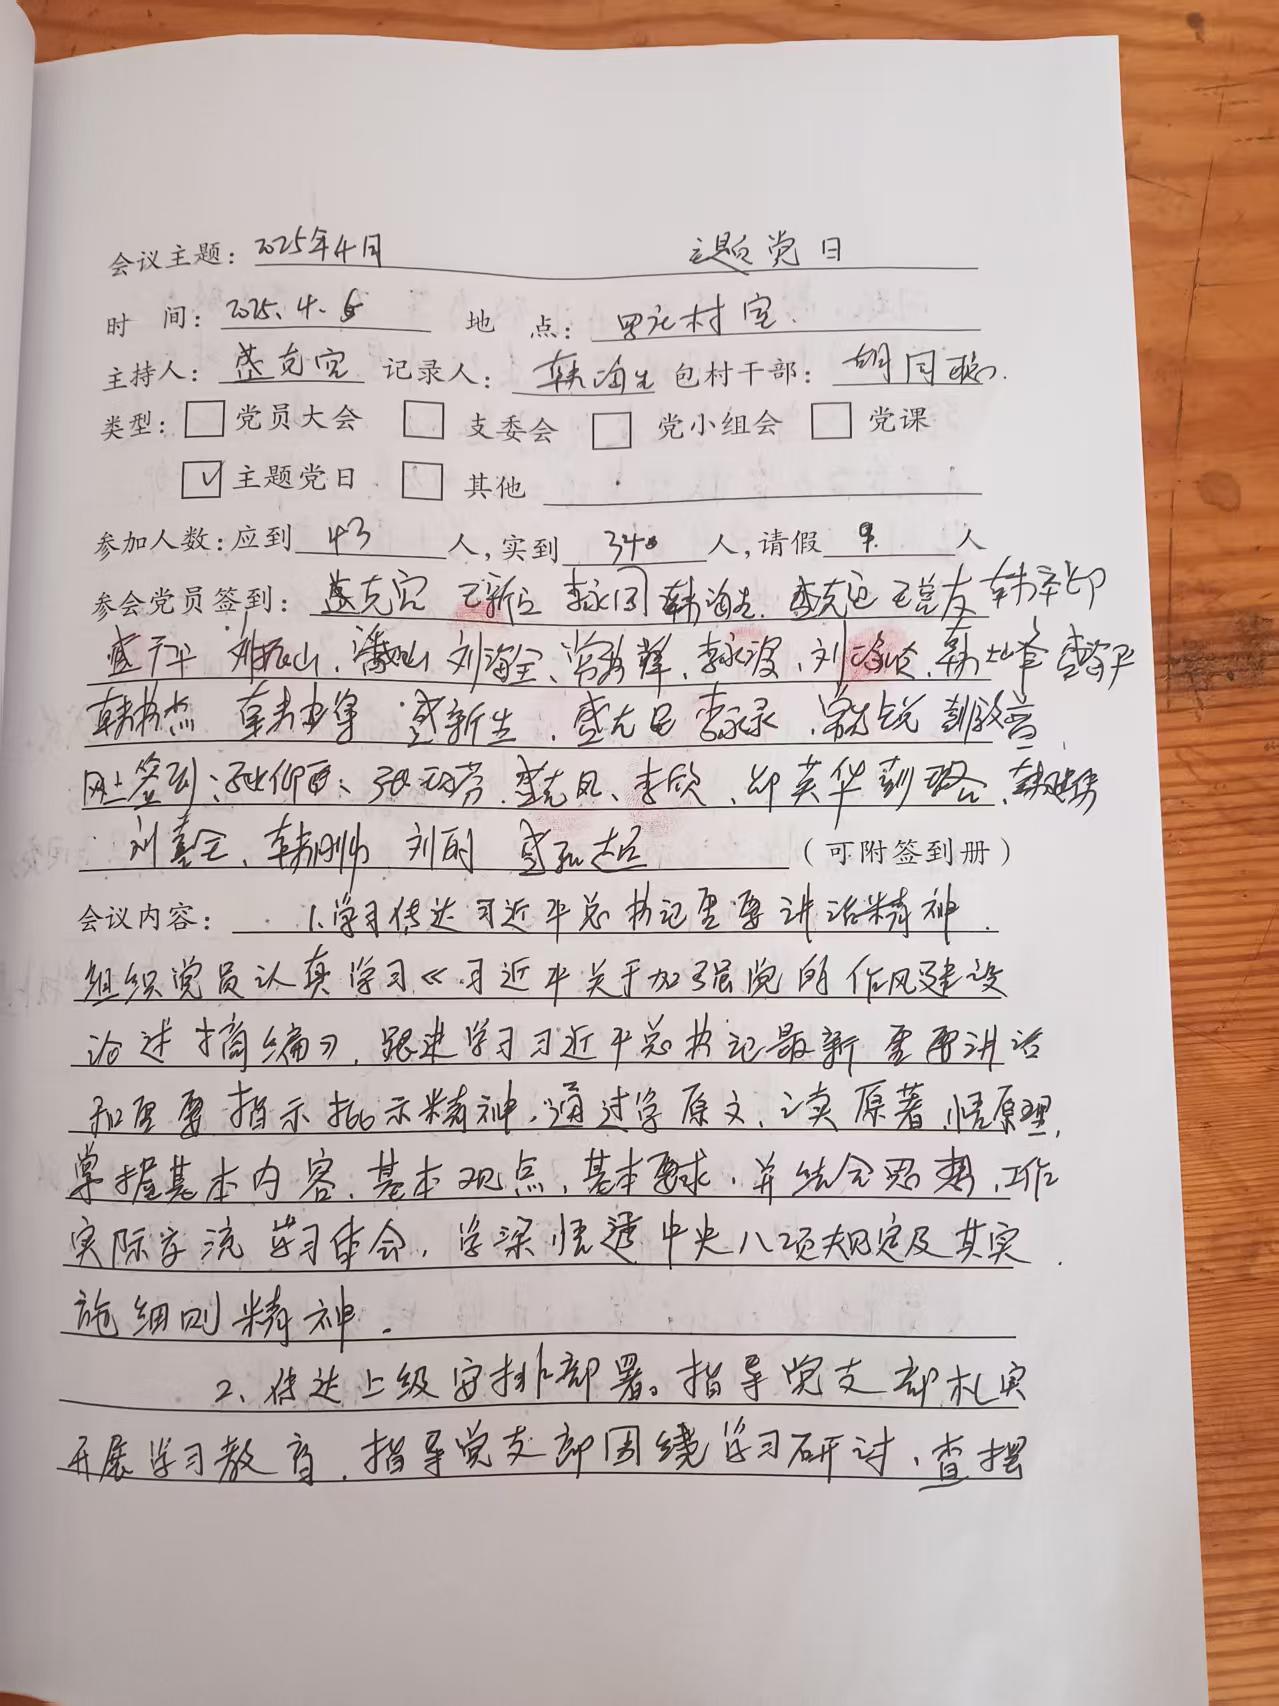 会议主题：2025年4月 主题党日
时 间：2025.4.5 地 点：村室.
主持人：盛克宽 记录人：韩海生 包村干部：胡同聪.
类型： 党员大会 支委会 党小组会 党课
✓ 主题党日 其他
参加人数：应到 43 人，实到 34 人，请假 9. 人
参会党员签到：盛克宽 王新 李永同 韩海生. 盛克 王党友 韩
盛 刘山、潘山 刘海全、常辉、李永波、刘海、韩峰
韩书杰 韩 盛新生、盛克 李永录、常锐 彭
网上签到：张仰、张芬、盛克凤、李欣、邱英华 彭璐、韩
刘喜全、韩刚 刘丽 盛 （可附签到册）
会议内容： 1.学习传达习近平总书记重要讲话精神.
组织党员认真学习《习近平关于加强党的作风建设
论述摘编》，跟进学习习近平总书记最新重要讲话
和重要指示批示精神，通过学原文、读原著、悟原理，
掌握基本内容、基本观点、基本要求，并结合思想、工作
实际交流学习体会，学深悟透中央八项规定及其实
施细则精神.
2、传达上级安排部署。指导党支部扎实
开展学习教育，指导党支部围绕学习研讨、查摆